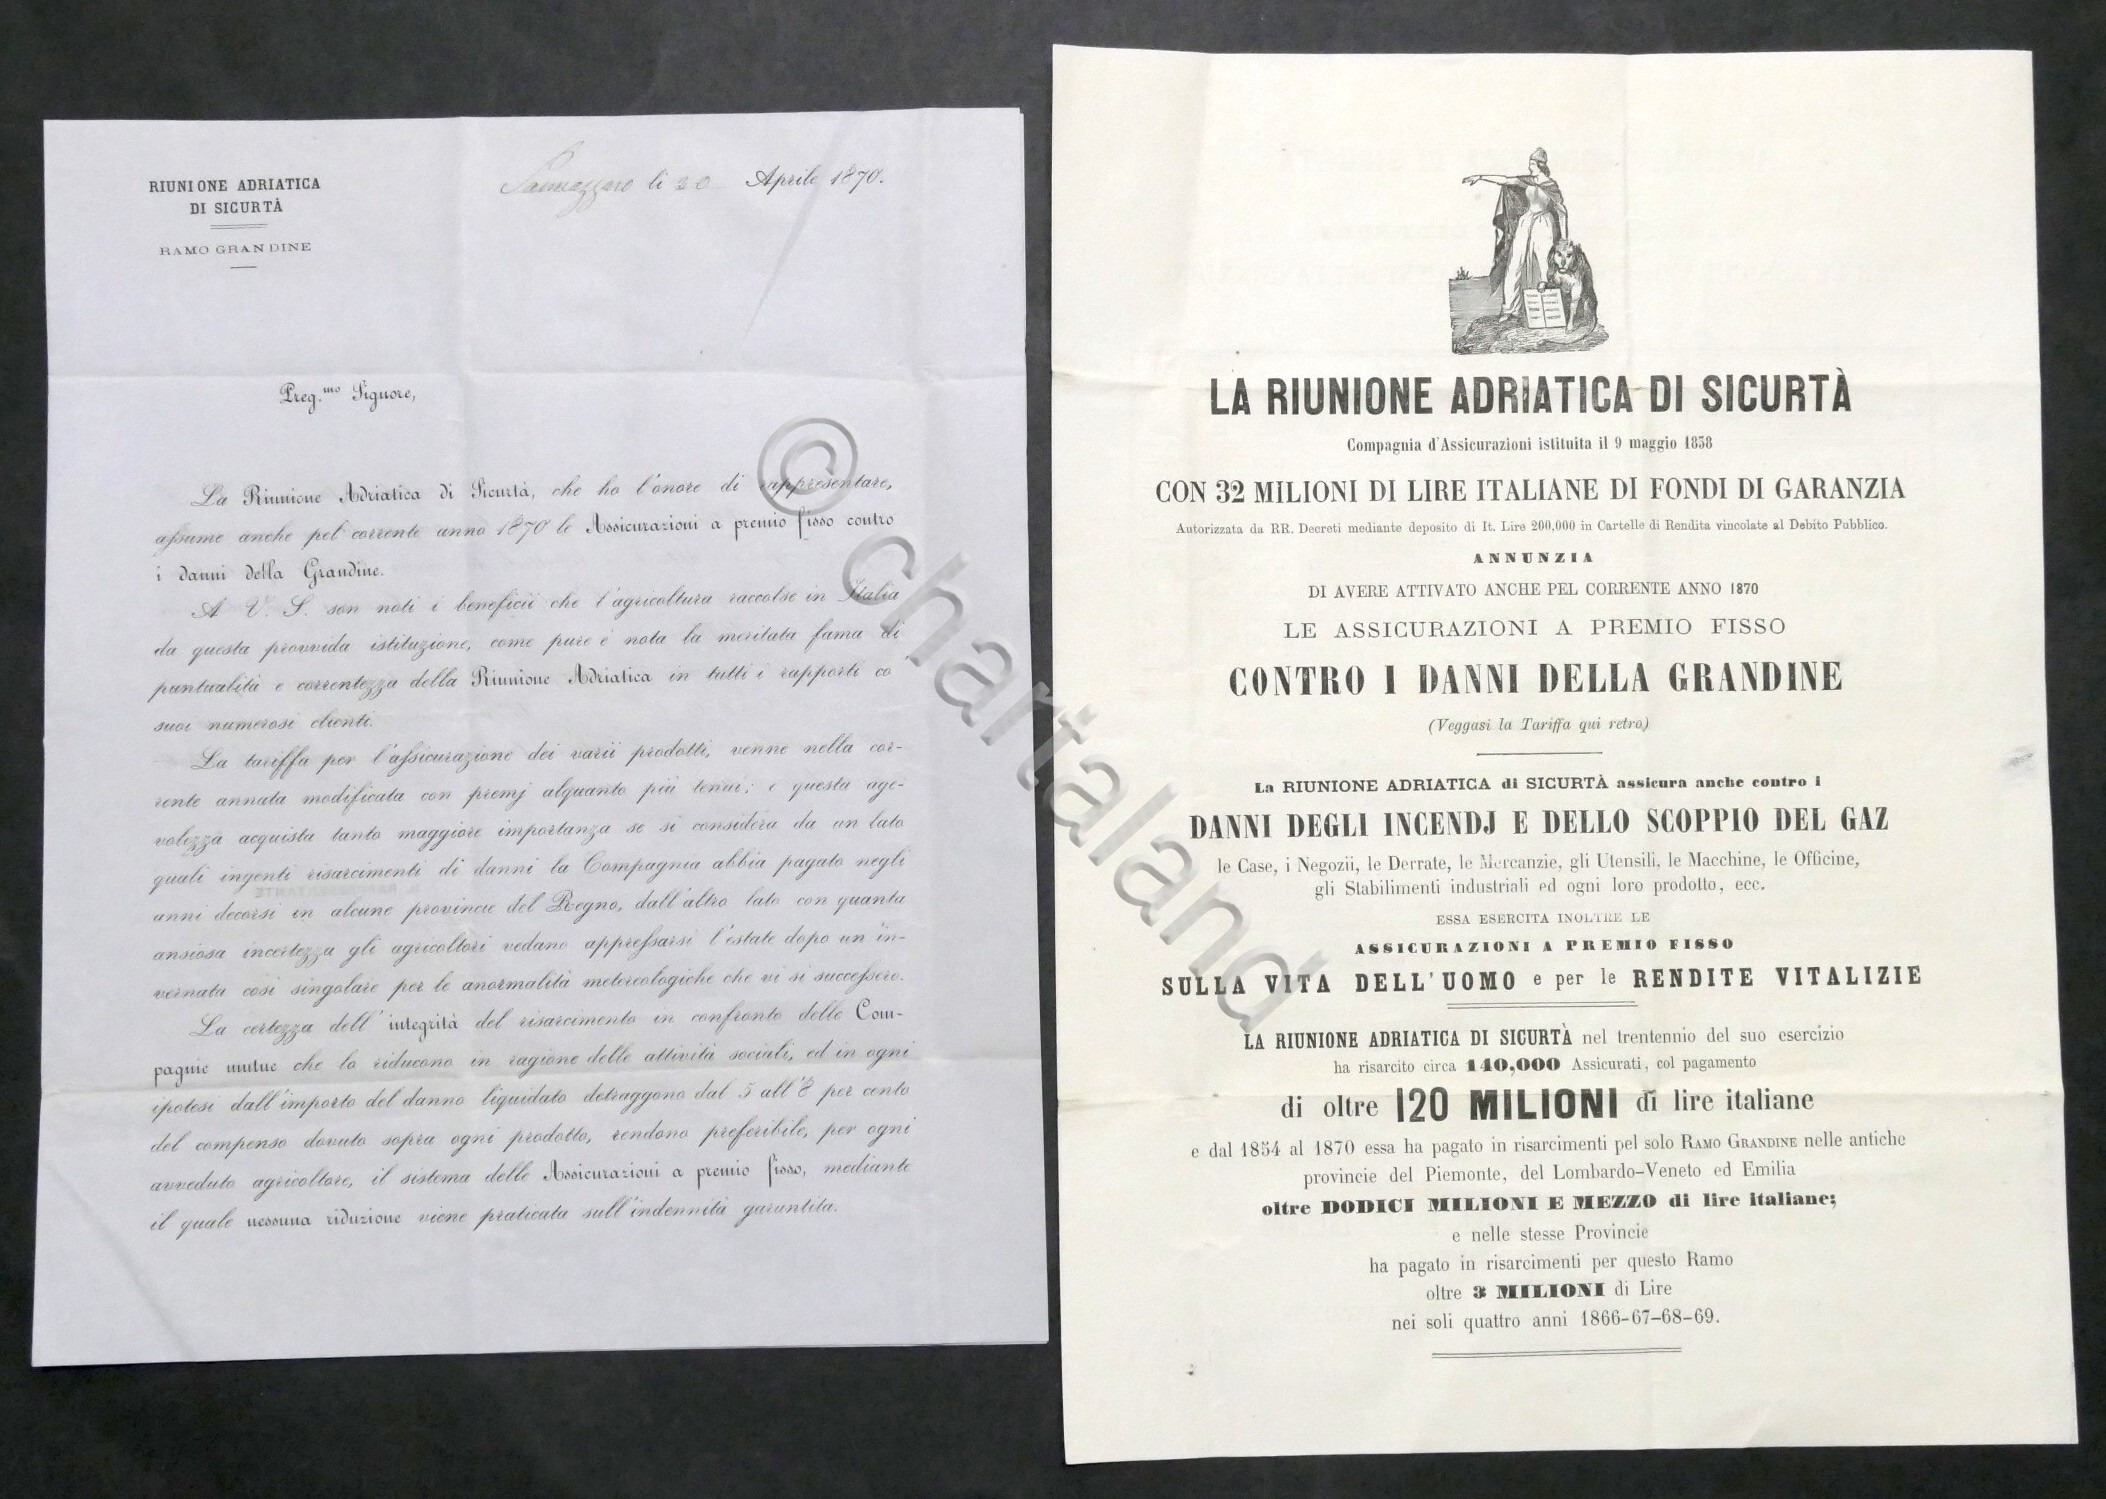 RIUNIONE ADRIATICA
DI SICURTÀ
RAMO GRANDINE
Sannazzaro li 20 Aprile 1870.
Preg.mo Signore,
La Riunione Adriatica di Sicurtà, che ho l'onore di rappresentare,
assume anche pel corrente anno 1870 le Assicurazioni a premio fisso contro
i danni della Grandine.
A V. S. son noti i beneficii che l'agricoltura raccolse in Italia
da questa provvida istituzione, come pure è nota la meritata fama di
puntualità e correntezza della Riunione Adriatica in tutti i rapporti co'
suoi numerosi clienti.
La tariffa per l'assicurazione dei varii prodotti, venne nella cor-
rente annata modificata con premj alquanto più tenui; e questa age-
volezza acquista tanto maggiore importanza se si considera da un lato
quali ingenti risarcimenti di danni la Compagnia abbia pagato negli
anni decorsi in alcune provincie del Regno, dall'altro lato con quanta
ansiosa incertezza gli agricoltori vedano appressarsi l'estate dopo un'in-
vernata così singolare per le anormalità metereologiche che vi si successero.
La certezza dell'integrità del risarcimento in confronto delle Com-
pagnie mutue che lo riducono in ragione delle attività sociali, ed in ogni
ipotesi dall'importo del danno liquidato detraggono dal 5 all'8 per cento
del compenso dovuto sopra ogni prodotto, rendono preferibile, per ogni
avveduto agricoltore, il sistema delle Assicurazioni a premio fisso, mediante
il quale nessuna riduzione viene praticata sull'indennità garantita.
LA RIUNIONE ADRIATICA DI SICURTÀ
Compagnia d'Assicurazioni istituita il 9 maggio 1838
CON 32 MILIONI DI LIRE ITALIANE DI FONDI DI GARANZIA
Autorizzata da RR. Decreti mediante deposito di It. Lire 200,000 in Cartelle di Rendita vincolate al Debito Pubblico.
ANNUNZIA
DI AVERE ATTIVATO ANCHE PEL CORRENTE ANNO 1870
LE ASSICURAZIONI A PREMIO FISSO
CONTRO I DANNI DELLA GRANDINE
(Veggasi la Tariffa qui retro)
La RIUNIONE ADRIATICA di SICURTÀ assicura anche contro i
DANNI DEGLI INCENDJ E DELLO SCOPPIO DEL GAZ
le Case, i Negozii, le Derrate, le Mercanzie, gli Utensili, le Macchine, le Officine,
gli Stabilimenti industriali ed ogni loro prodotto, ecc.
ESSA ESERCITA INOLTRE LE
ASSICURAZIONI A PREMIO FISSO
SULLA VITA DELL'UOMO e per le RENDITE VITALIZIE
LA RIUNIONE ADRIATICA DI SICURTÀ nel trentennio del suo esercizio
ha risarcito circa 140,000 Assicurati, col pagamento
di oltre 120 MILIONI di lire italiane
e dal 1854 al 1870 essa ha pagato in risarcimenti pel solo RAMO GRANDINE nelle antiche
provincie del Piemonte, del Lombardo-Veneto ed Emilia
oltre DODICI MILIONI E MEZZO di lire italiane;
e nelle stesse Provincie
ha pagato in risarcimenti per questo Ramo
oltre 3 MILIONI di Lire
nei soli quattro anni 1866-67-68-69.
© chartaland